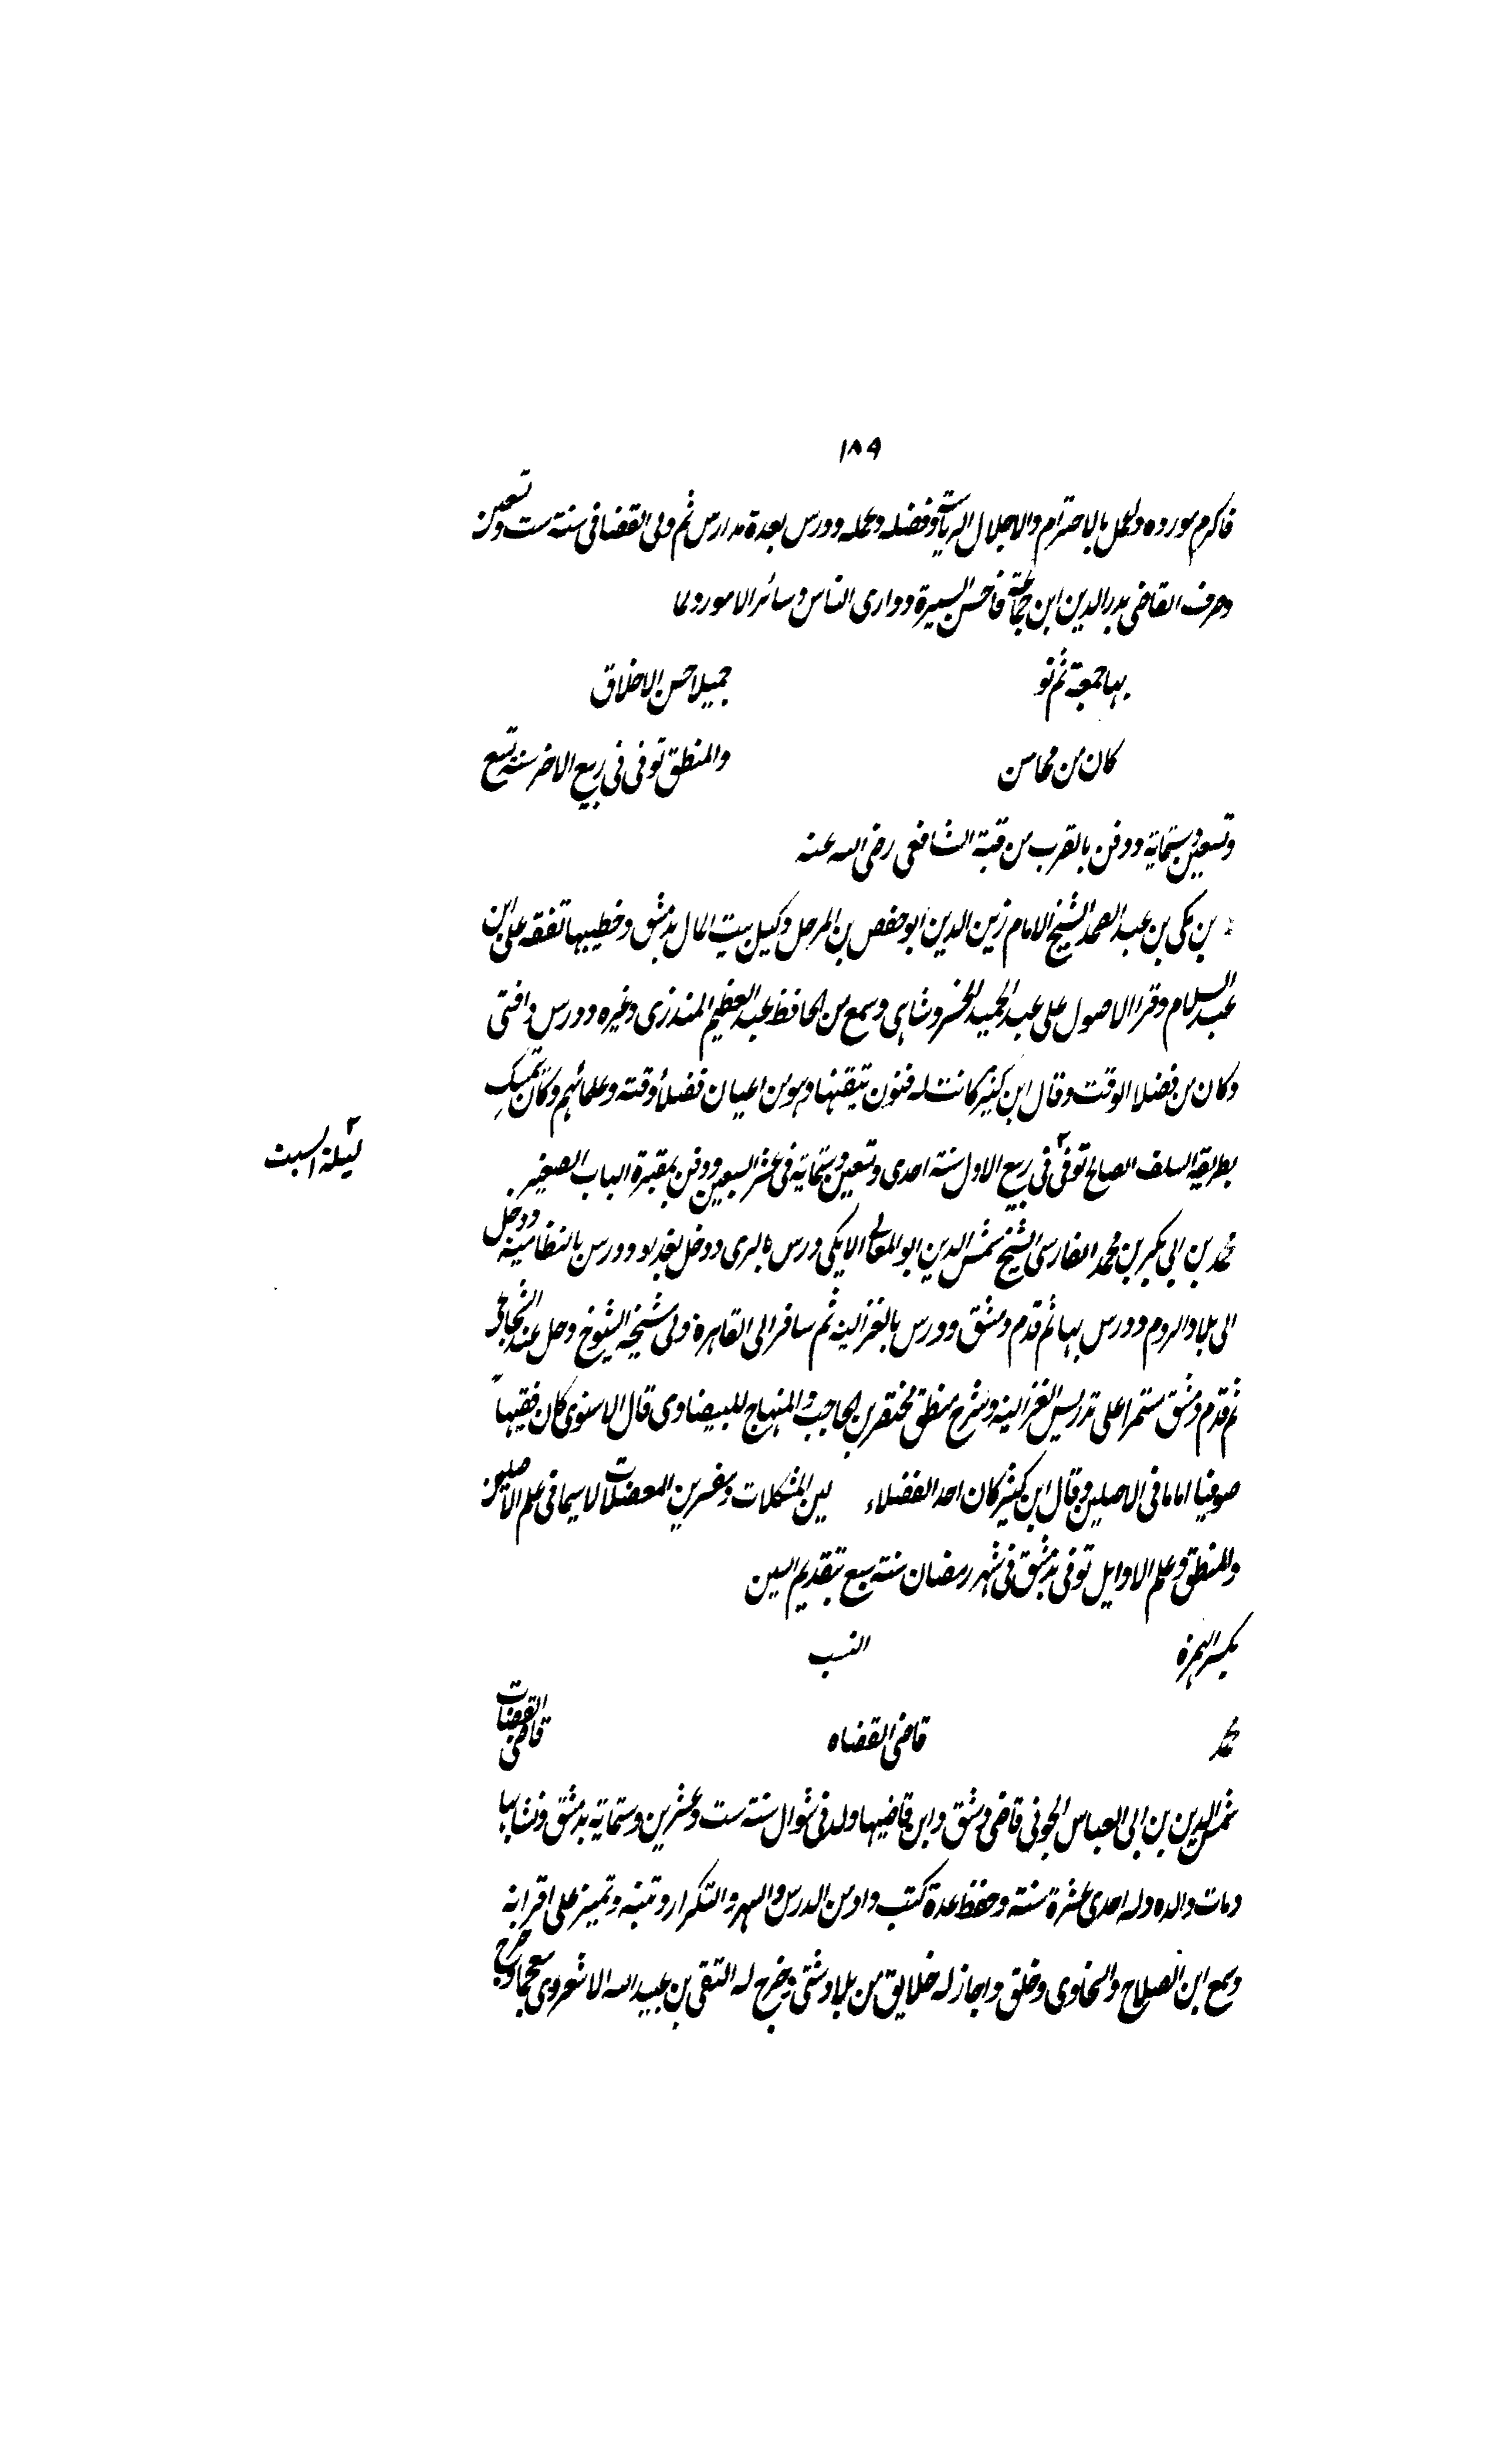 ١٨٩
فاكرم مورده وعومل بالاحترام والاجلال لرياسته وفضله وعمله ودرس بعدة مدارس ثم ولى القضا فى سنة ست وتسعين
وصرف القاضى بدر الدين ابن جماعة فاحسن السيرة ودارى الناس وسائر الامور ولما
بها جمعة ثم تو جميلا حسن الاخلاق
كان من محاسن والمنطق توفى فى ربيع الاخر سنة تسع
وتسعين وستماية ودفن بالقرب من قبة الشافعى رضى الله عنه
بن مكى بن عبد الصمد الشيخ الامام زين الدين ابو حفص بن المرحل وكيل بيت المال بدمشق وخطيبها تفقه على ابن
عبد السلام وقرا الاصول على عبد الحميد الخسروشاهى وسمع من الحافظ عبد العظيم المنذرى وغيره ودرس وافتى
وكان من فضلا الوقت وقال ابن كثير كانت له فنون يتيقنها وهو من اعيان فضلا وقته وعلمائهم وكان تمسك
بطريقة السلف الصالح توفى فى ربيع الاول سنة احدى وتسعين وستماية فى عشر السبعين ودفن بمقبرة الباب الصغير
ليلة السبت
محمد بن ابى بكر بن محمد الفارسى الشيخ شمس الدين ابو المعالى الايكى درس بالرى ودخل بغداد ودرس بالنظامية ودخل
الى بلاد الروم ودرس بها ثم قدم دمشق ودرس بالغزالية ثم سافر الى القاهرة ولى مشيخة الشيوخ وحل عند
ثم قدم دمشق مستمرا على تدريس الغزالية وشرح منطق مختصر بن الحاجب والمنهاج للبيضاوى قال الاسنوى كان فقيها
صوفيا اماما فى الاصلين وقال ابن كثير كان احد الفضلاء المشكلات المعضلات لاسيما فى علم الاصلين
والمنطق وعلم الاوايل توفى بدمشق فى شهر رمضان سنة سبع بتقديم السين
بكسر الهمزة النسب
محمد قاضى القضاه قاضى القضات
شمس الدين بن ابى العباس الخوئى قاضى دمشق وابن قاضيها ولد فى شوال سنة ست وعشرين وستماية بدمشق ونشا بها
ومات والده وله احدى عشرة سنة وحفظ عدة كتب وادمن الدرس والسهر والتكرار وتنبه وتميز على اقرانه
وسمع ابن الصلاح والسخاوى وخلق واجاز له خلايق من بلاد شتى وخرج له التقى بن عبيد الله الاشعردى معجما وخرج